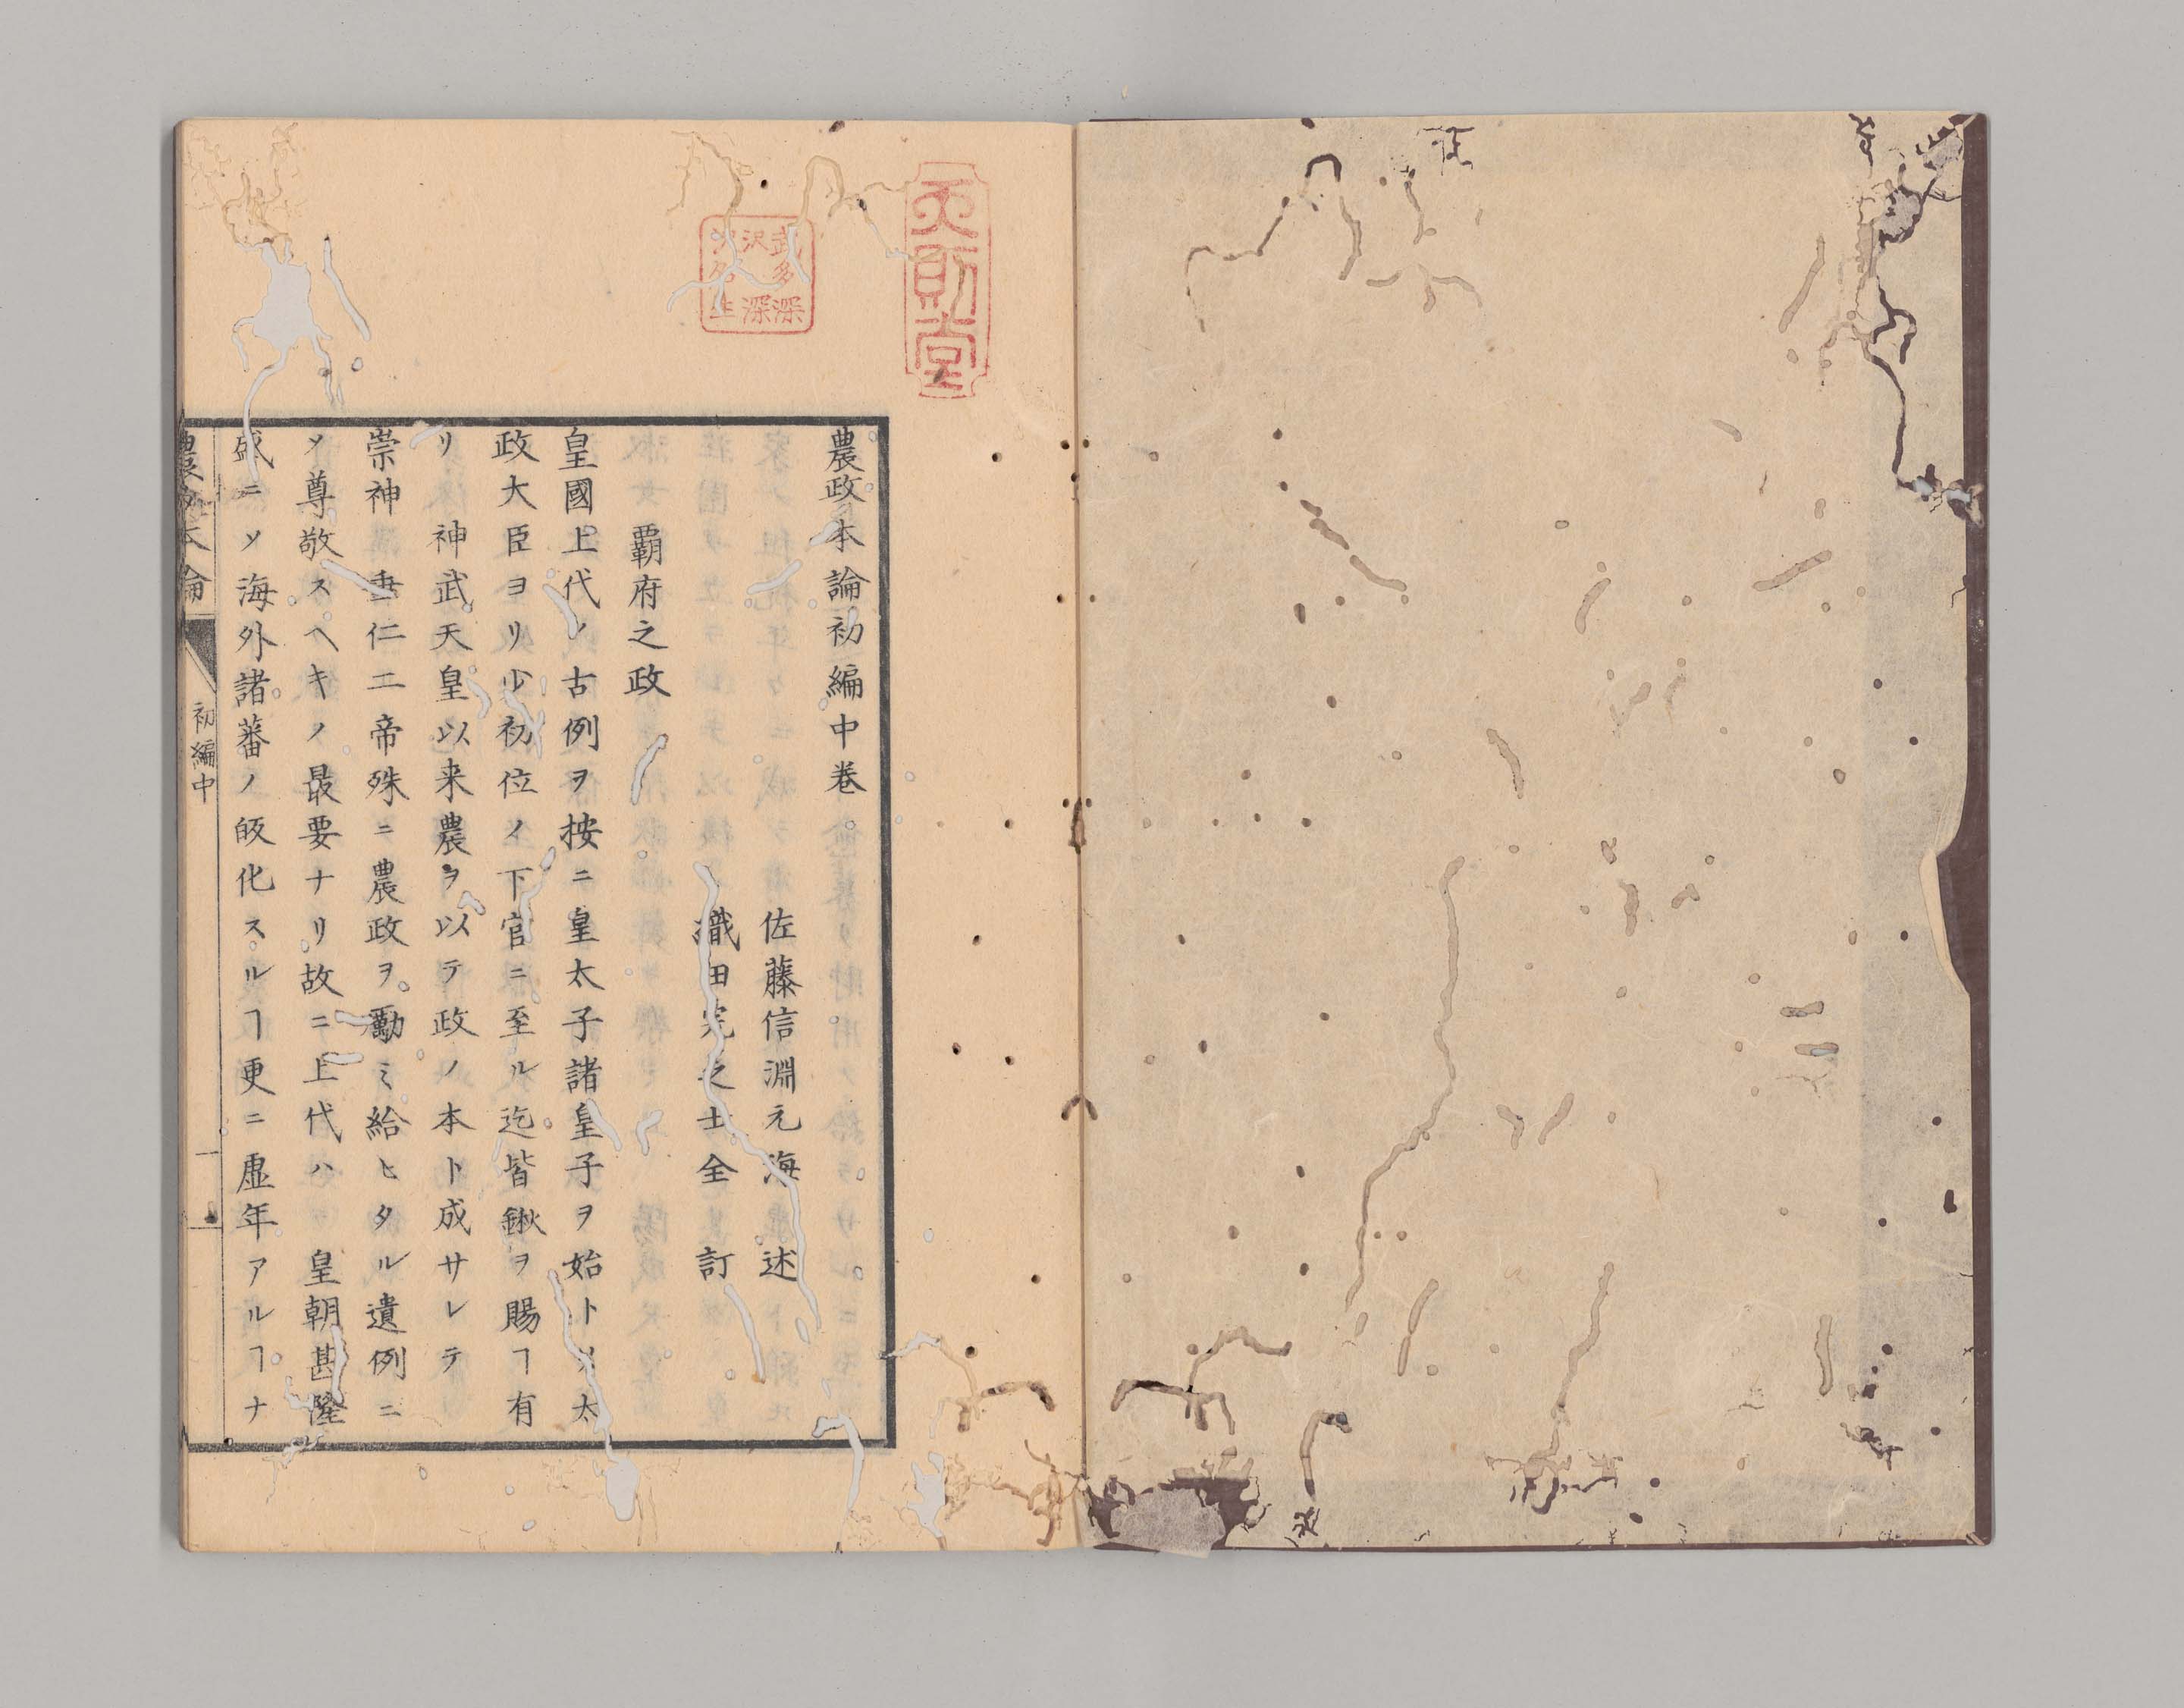 天則堂
農政本論初編中巻
佐藤信淵元海 述
織田完之士全 訂
覇府之政
皇國上代ノ古例ヲ按ニ皇太子諸皇子ヲ始トメ太
政大臣ヨリ少初位ノ下官ニ至ル迄皆鍬ヲ賜ヿ有
リ 神武天皇以来農ヲ以テ政ノ本ト成サレテ
崇神 垂仁二帝殊ニ農政ヲ勸ミ給ヒタル遺例ニ
〆尊敬スヘキノ最要ナリ故ニ上代ハ 皇朝甚隆
盛ニ〆海外諸蕃ノ皈化スルヿ更ニ虚年アルヿナ
農政本論
初編中
一